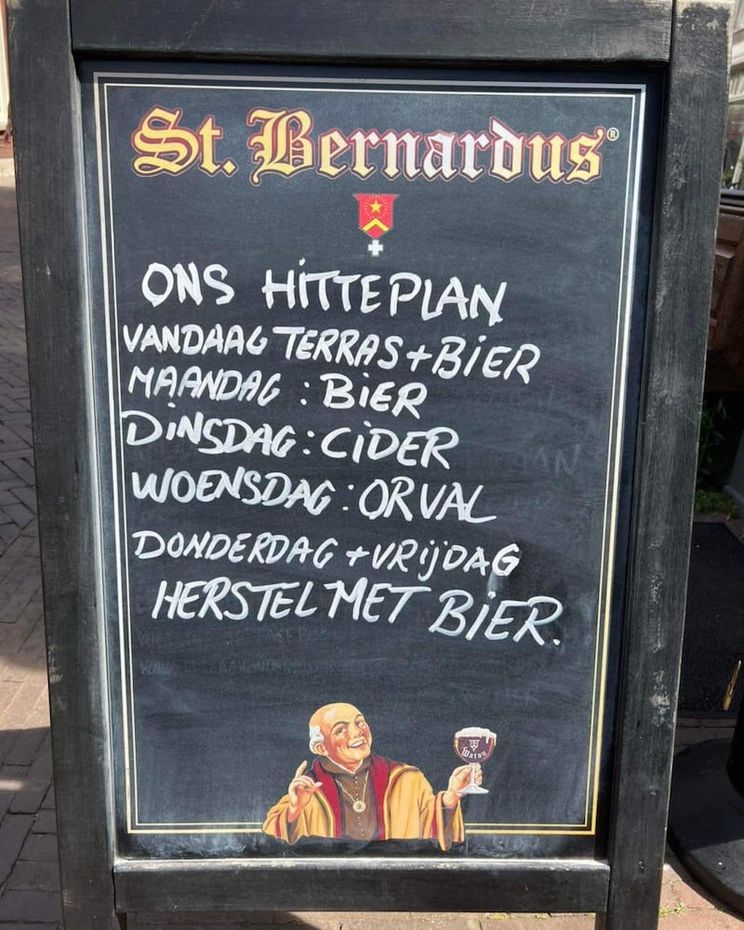 St. Bernardus®
ONS HITTEPLAN
VANDAAG TERRAS + BIER
MAANDAG : BIER
DINSDAG : CIDER
WOENSDAG : ORVAL
DONDERDAG + VRIJDAG
HERSTEL MET BIER.
Watou